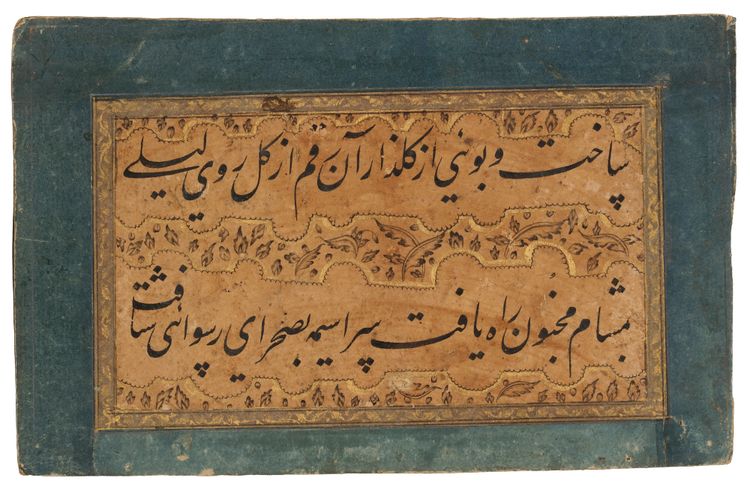 ساخت و بوئی از کلذار آن رقم از کل روی لیلے
بمشام مجنون راه یافت سراسیمه بصحرای رسوائی شتافت